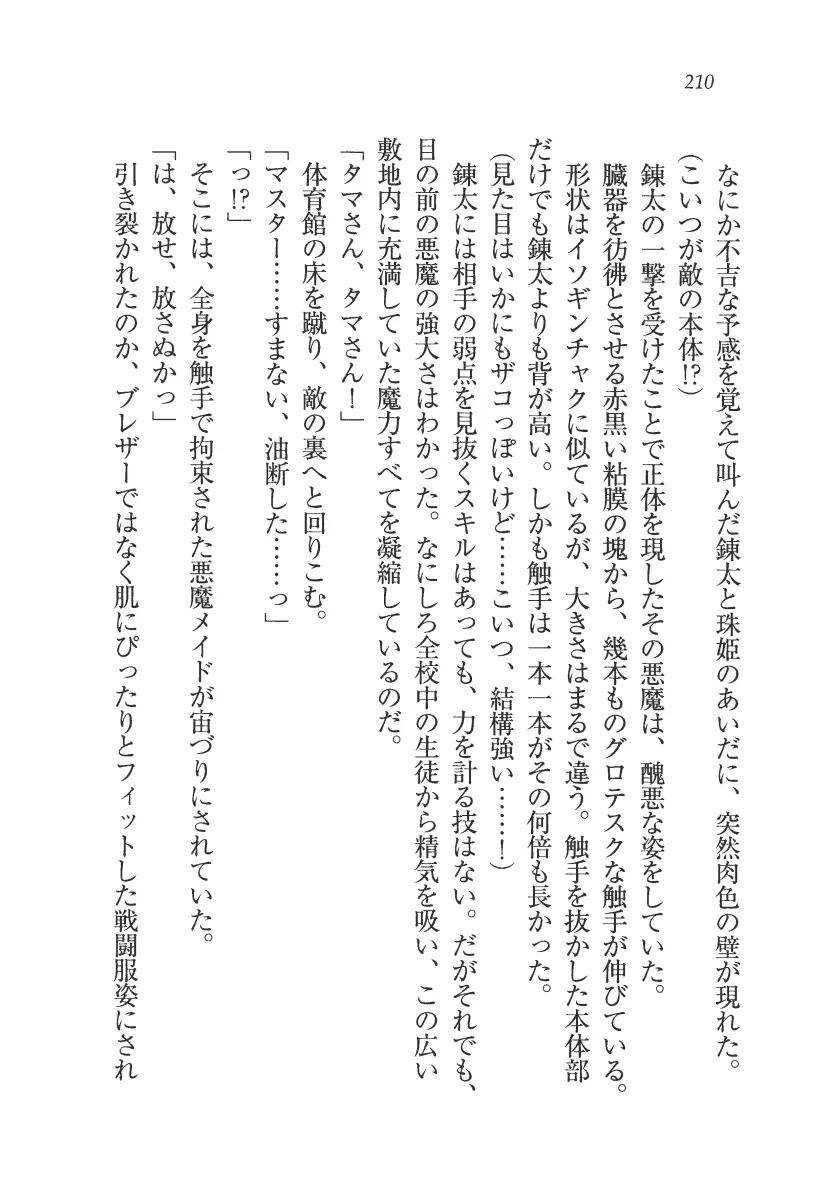 210
なにか不吉な予感を覚えて叫んだ錬太と珠姫のあいだに、突然肉色の壁が現れた。
(こいつが敵の本体!?)
錬太の一撃を受けたことで正体を現したその悪魔は、醜悪な姿をしていた。
臓器を彷彿とさせる赤黒い粘膜の塊から、幾本ものグロテスクな触手が伸びている。
形状はイソギンチャクに似ているが、大きさはまるで違う。触手を抜かした本体部
だけでも錬太よりも背が高い。しかも触手は一本一本がその何倍も長かった。
(見た目はいかにもザコっぽいけど……こいつ、結構強い……!)
錬太には相手の弱点を見抜くスキルはあっても、力を計る技はない。だがそれでも、
目の前の悪魔の強大さはわかった。なにしろ全校中の生徒から精気を吸い、この広い
敷地内に充満していた魔力すべてを凝縮しているのだ。
「タマさん、タマさん!」
体育館の床を蹴り、敵の裏へと回りこむ。
「マスター……すまない、油断した……っ」
「っ!?」
そこには、全身を触手で拘束された悪魔メイドが宙づりにされていた。
「は、放せ、放さぬかっ」
引き裂かれたのか、ブレザーではなく肌にぴったりとフィットした戦闘服姿にされ